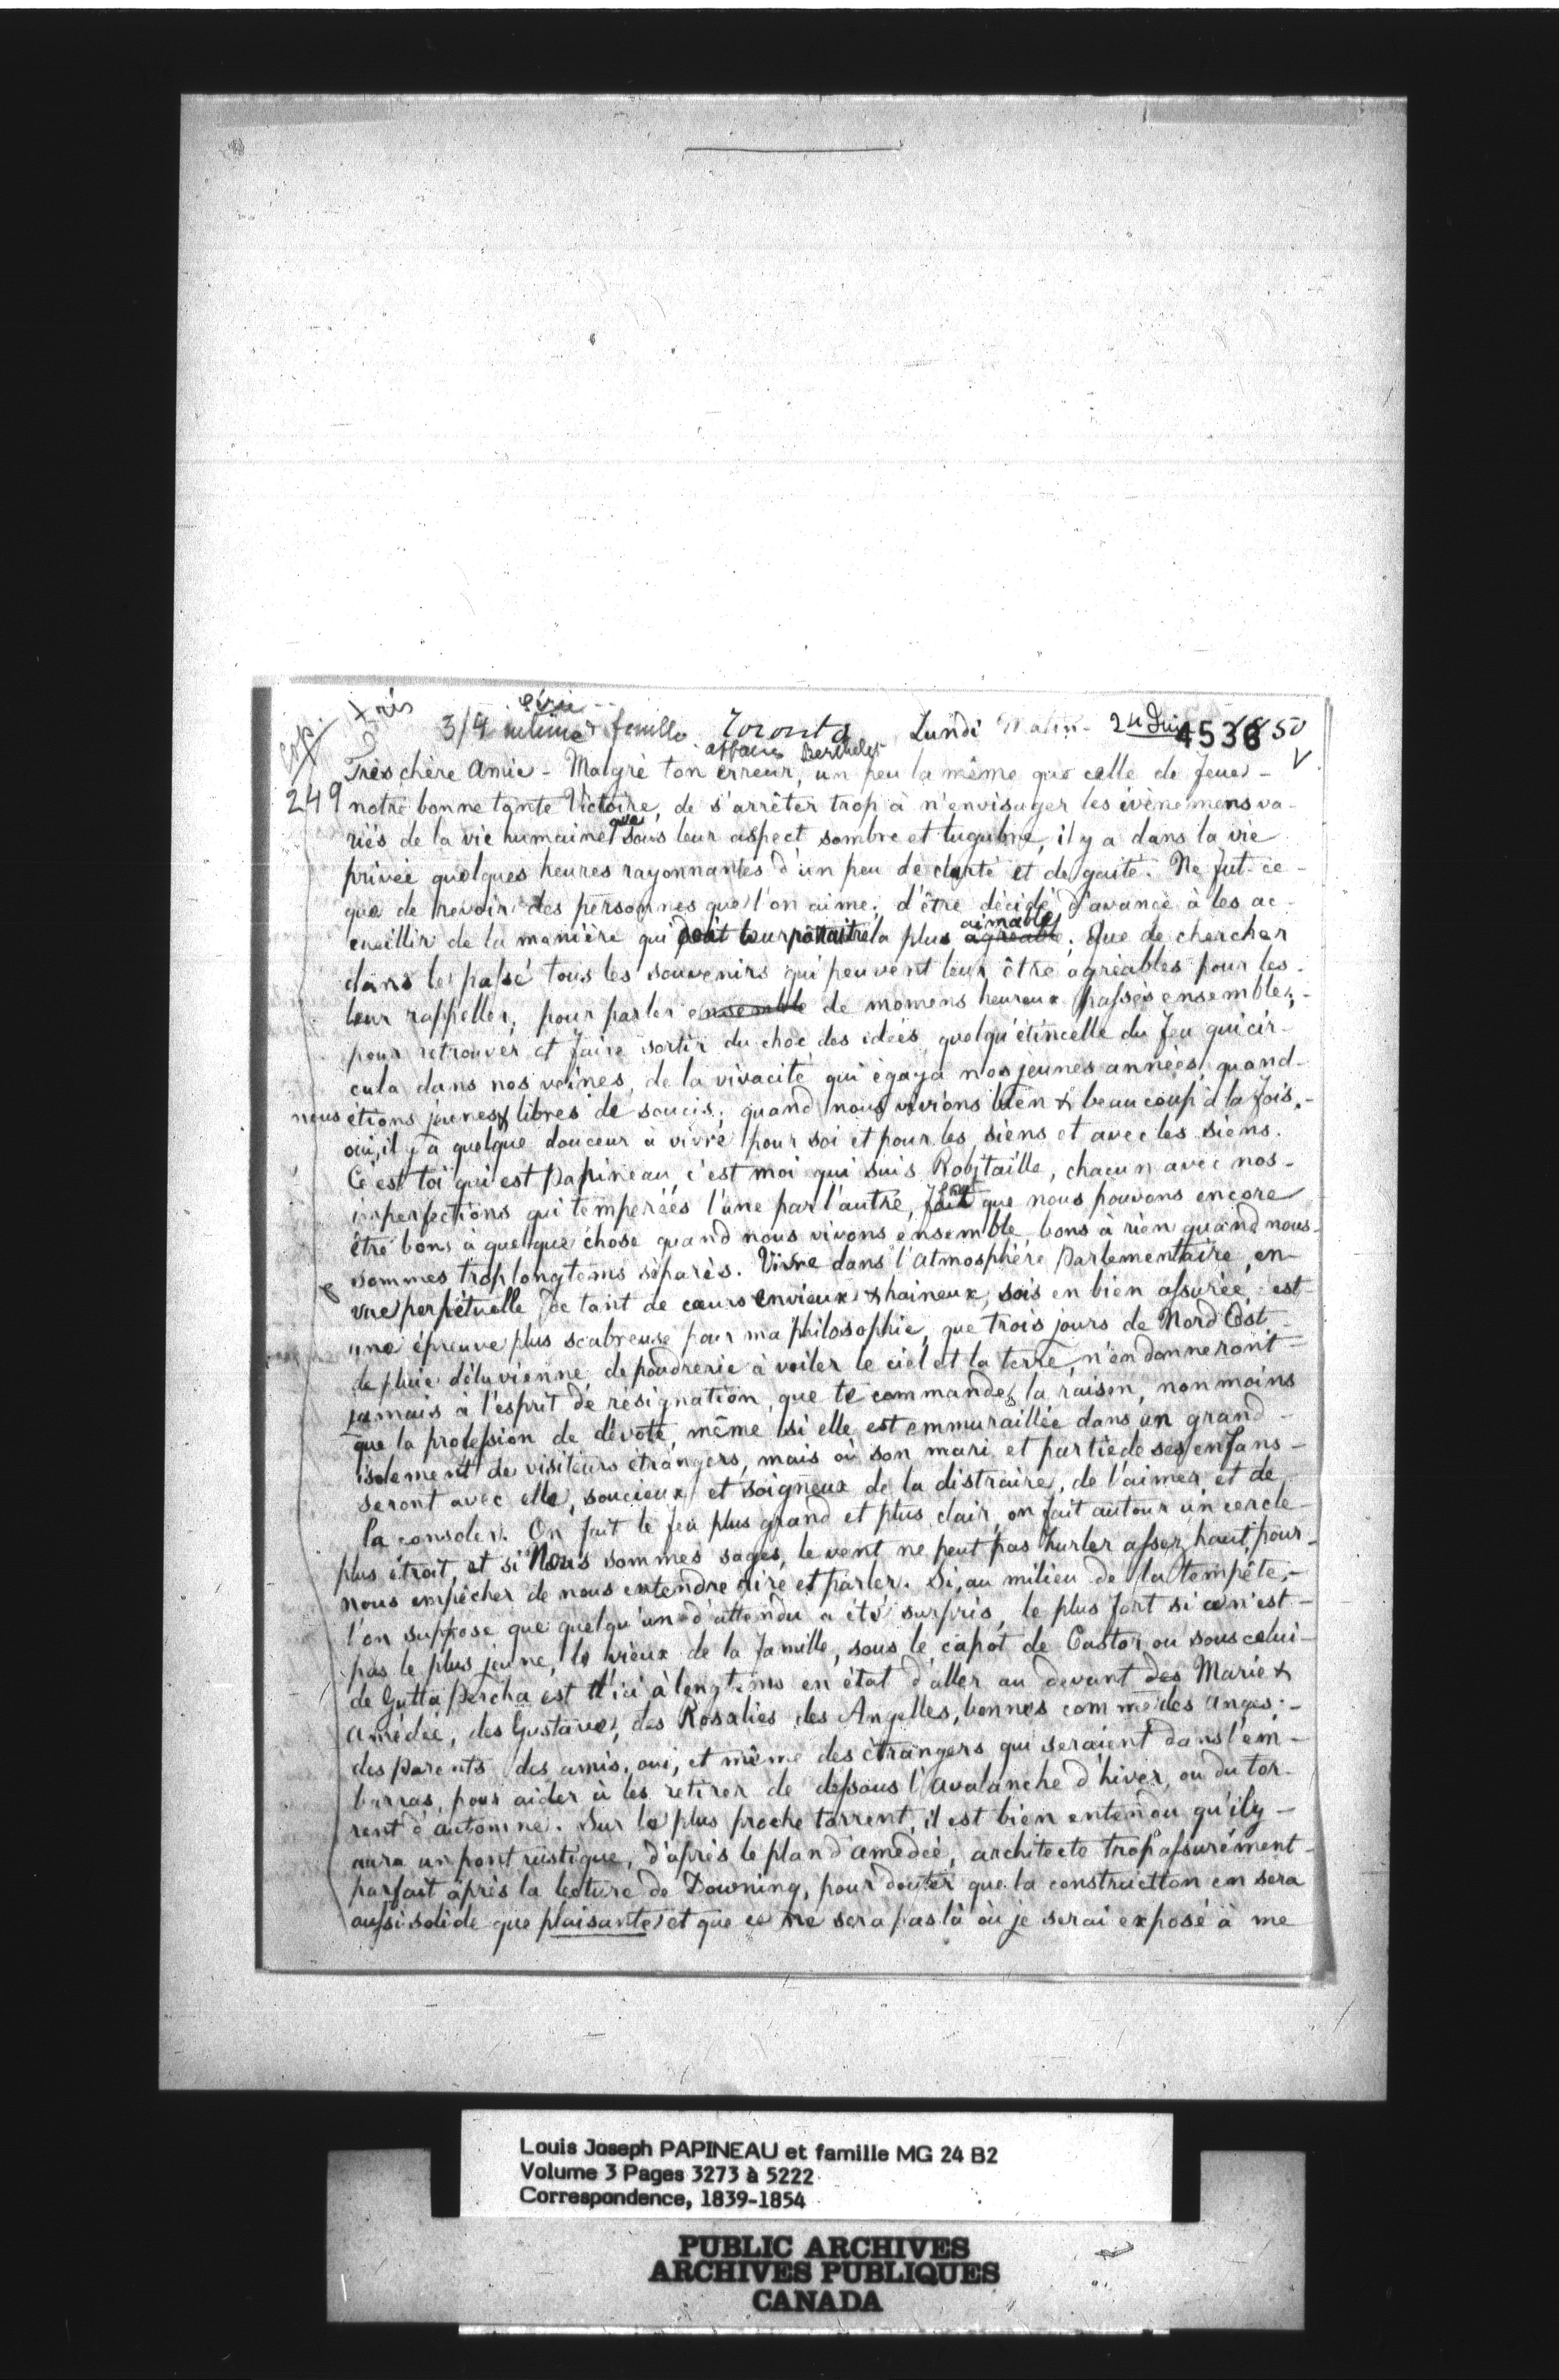 cop. très
3/4 intime & famille Toronto Lundi Matin - 24 Juin 4536 50
affaires Berthelet
Très chère Amie - Malgré ton erreur, un peu la même que celle de feue -
249 notre bonne tante Victoire, de s'arrêter trop à n'envisager les évènemens va-
riés de la vie humaine que sous leur aspect sombre et lugubre, il y a dans la vie
privée quelques heures rayonnantes d'un peu de clarté et de gaité. Ne fut-ce -
que de revoir des personnes que l'on aime; d'être décidé d'avance à les ac-
cueillir de la manière qui doit leur paraitre la plus agréable aimable; Que de chercher
dans le passé tous les souvenirs qui peuvent leur être agréables pour les -
leur rappeller, pour parler ensemble de momens heureux passés ensemble; -
pour retrouver et faire sortir du choc des idées quelqu'étincelle du feu qui cir-
cula dans nos veines, de la vivacité qui égaya nos jeunes années, quand -
nous étions jeunes & libres de soucis; quand nous vivions bien & beaucoup à la fois. -
oui, il y a quelque douceur à vivre pour soi et pour les siens et avec les siens.
C'est toi qui est Papineau, c'est moi qui suis Robitaille, chacun avec nos -
imperfections qui tempérées l'une par l'autre, font que nous pouvons encore
être bons à quelque chose quand nous vivons ensemble, bons à rien quand nous -
sommes trop longtems séparés. Vivre dans l'atmosphère Parlementaire, en -
vue perpétuelle de tant de cœurs envieux & haineux, sois en bien assurée, est -
une épreuve plus scabreuse pour ma philosophie, que trois jours de Nord Est -
de pluie déluvienne, de poudrerie à voiler le ciel et la terre, n'en donneront -
jamais à l'esprit de résignation, que te commande la raison, non moins
que la profession de dévote, même si elle est emmuraillée dans un grand -
isolement de visiteurs étrangers, mais où son mari et partie de ses enfans -
seront avec elle, soucieux et soigneux de la distraire, de l'aimer et de
la consoler. On fait le feu plus grand et plus clair, on fait autour un cercle -
plus étroit, et si Nous sommes sages, le vent ne peut pas hurler assez haut, pour -
nous empêcher de nous entendre rire et parler. Si, au milieu de la tempête, -
l'on suppose que quelqu'un d'attendu a été surpris, le plus fort si ce n'est -
pas le plus jeune, le vieux de la famille, sous le capot de Castor ou sous celui -
de Gutta Percha est d'ici à longtems en état d'aller au devant des Marie &
Amédée, des Gustave, des Rosalies des Angelles, bonnes comme des Anges; -
des Parents des amis, oui, et même des étrangers qui seraient dans l'em-
barras, pour aider à les retirer de dessous l'avalanche d'hiver, ou du tor-
rent d'automne. Sur le plus proche torrent, il est bien entendu qu'il y -
aura un pont rustique, d'après le plan d'amédée, architecte trop assurément -
parfait après la lecture de Downing, pour douter que la construction en sera
aussi solide que plaisante, et que ce ne sera pas là où je serai exposé à me
Louis Joseph PAPINEAU et famille MG 24 B2
Volume 3 Pages 3273 à 5222
Correspondence, 1839-1854
PUBLIC ARCHIVES
ARCHIVES PUBLIQUES
CANADA